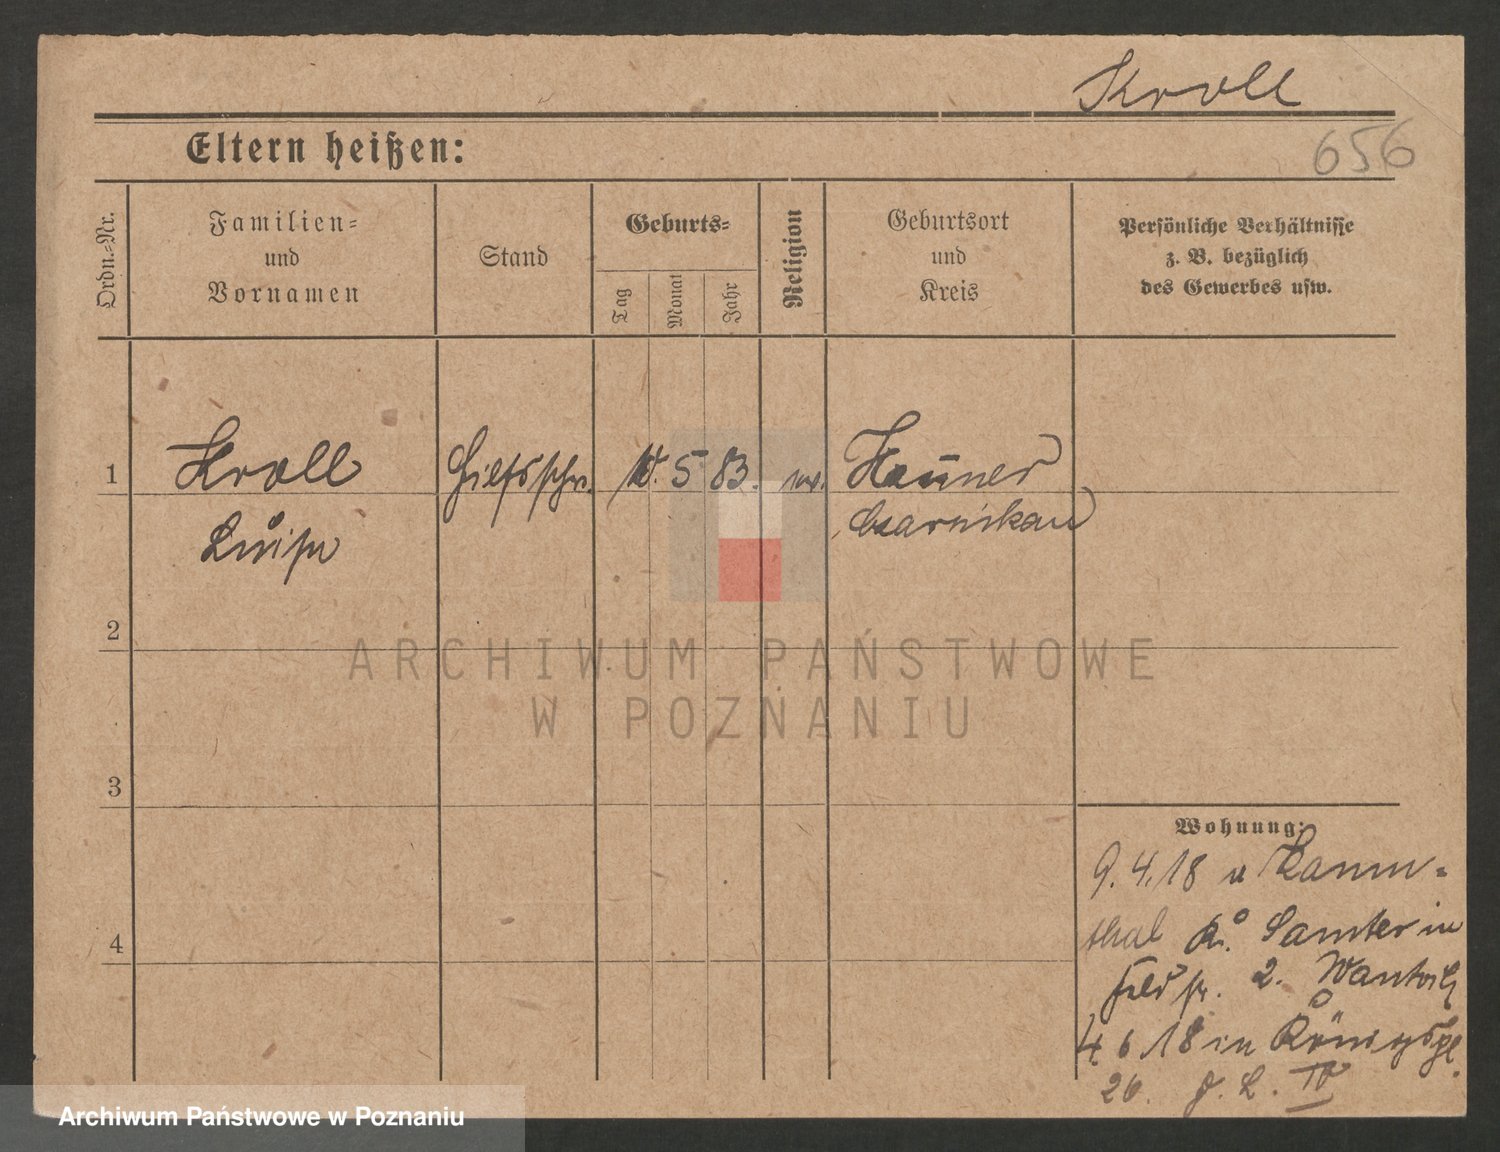 Kroll
656
Eltern heißen:
Ordn.-Nr.
Familien-
und
Vornamen
Stand
Geburts-
Tag
Monat
Jahr
Religion
Geburtsort
und
Kreis
Persönliche Verhältnisse
z. B. bezüglich
des Gewerbes usw.
1 Kroll Hilfsschr. 5 83.
Luise Czarnikau
2
3
4
Wohnung:
9.4.18 v
thal Kr. Samter in
Feldstr. 2.
4 6 18 in Königspl.
26. G. L. IV
ARCHIWUM PAŃSTWOWE
W POZNANIU
Archiwum Państwowe w Poznaniu